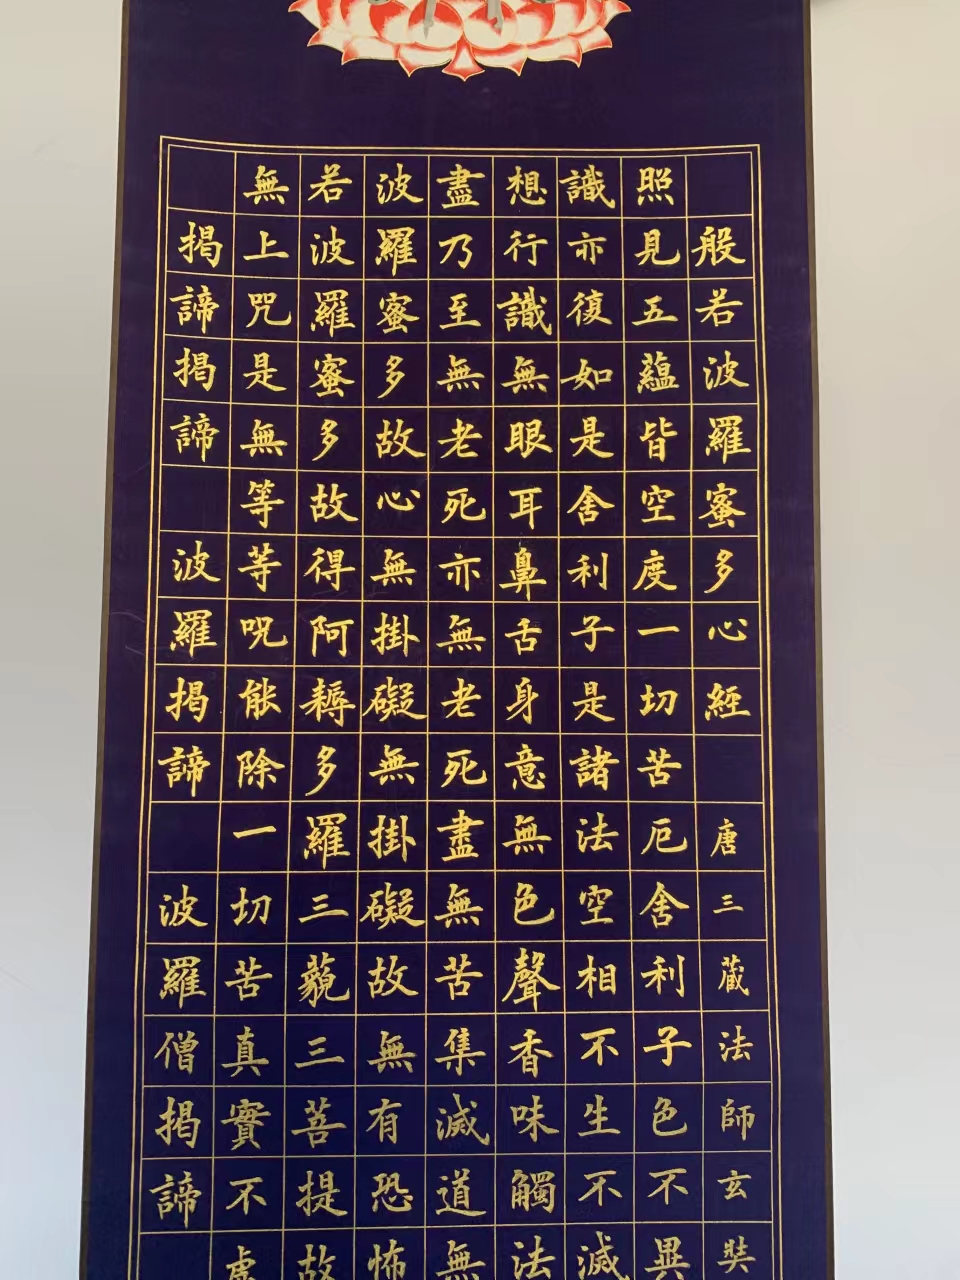 般若波羅蜜多心經 唐三藏法師玄奘
照見五蘊皆空度一切苦厄舍利子色不異
識亦復如是舍利子是諸法空相不生不滅
想行識無眼耳鼻舌身意無色聲香味觸法
盡乃至無老死亦無老死盡無苦集滅道無
波羅蜜多故心無掛礙無掛礙故無有恐怖
若波羅蜜多故得阿耨多羅三藐三菩提故
無上咒是無等等咒能除一切苦真實不虛
揭諦揭諦 波羅揭諦 波羅僧揭諦